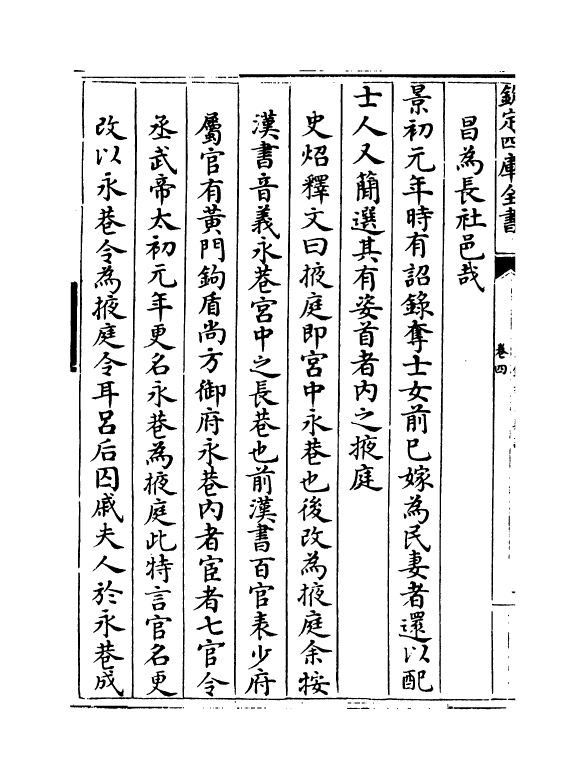 欽定四庫全書
卷四
昌為長社邑哉
景初元年時有詔錄奪士女前已嫁為民妻者還以配
士人又簡選其有姿首者內之掖庭
史炤釋文曰掖庭即宮中永巷也後改為掖庭余按
漢書音義永巷宮中之長巷也前漢書百官表少府
屬官有黃門鉤盾尚方御府永巷內者宦者七官令
丞武帝太初元年更名永巷為掖庭此特言官名更
改以永巷令為掖庭令耳呂后囚戚夫人於永巷成